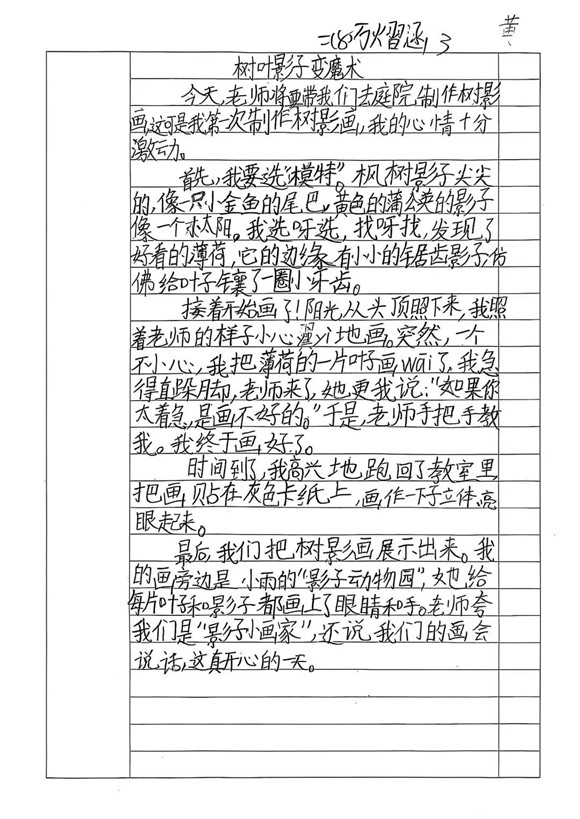 黄
二(8)历火熠涵 3
树叶影子变魔术
今天,老师将要带我们去庭院,制作树影
画,这可是我第一次制作树影画,我的心情十分
激动。
首先,我要选“模特”。枫树影子尖尖
的,像一只小金鱼的尾巴,黄色的蒲公英的影子
像一个小太阳。我选呀选,找呀找,发现了
好看的薄荷,它的边缘有小小的锯齿影子仿
佛给叶子镶了一圈小牙齿。
接着开始画了!阳光从头顶照下来,我照
着老师的样子小心翼yì地画。突然,一个
不小心,我把薄荷的一片叶子画wāi了,我急
得直跺脚,老师来了,她更我说:“如果你
太着急,是画不好的。”于是,老师手把手教
我。我终于画好了。
时间到了,我高兴地跑回了教室里
把画贴在灰色卡纸上,画作一下子立体,亮
眼起来。
最后,我们把树影画展示出来。我
的画旁边是小雨的“影子动物园”,她给
每片叶子和影子都画上了眼睛和手。老师夸
我们是“影子小画家”,还说我们的画会
说话,这真开心的一天。